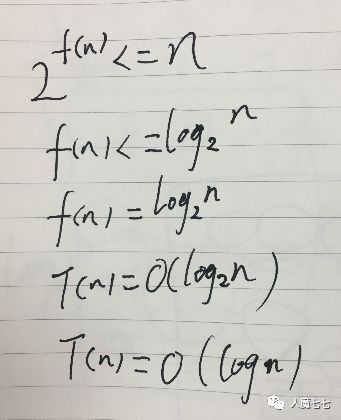 2^f(n) <= n
f(n) <= log₂ n
f(n) = log₂ n
T(n) = O(log₂n)
T(n) = O(logn)
人魔七七